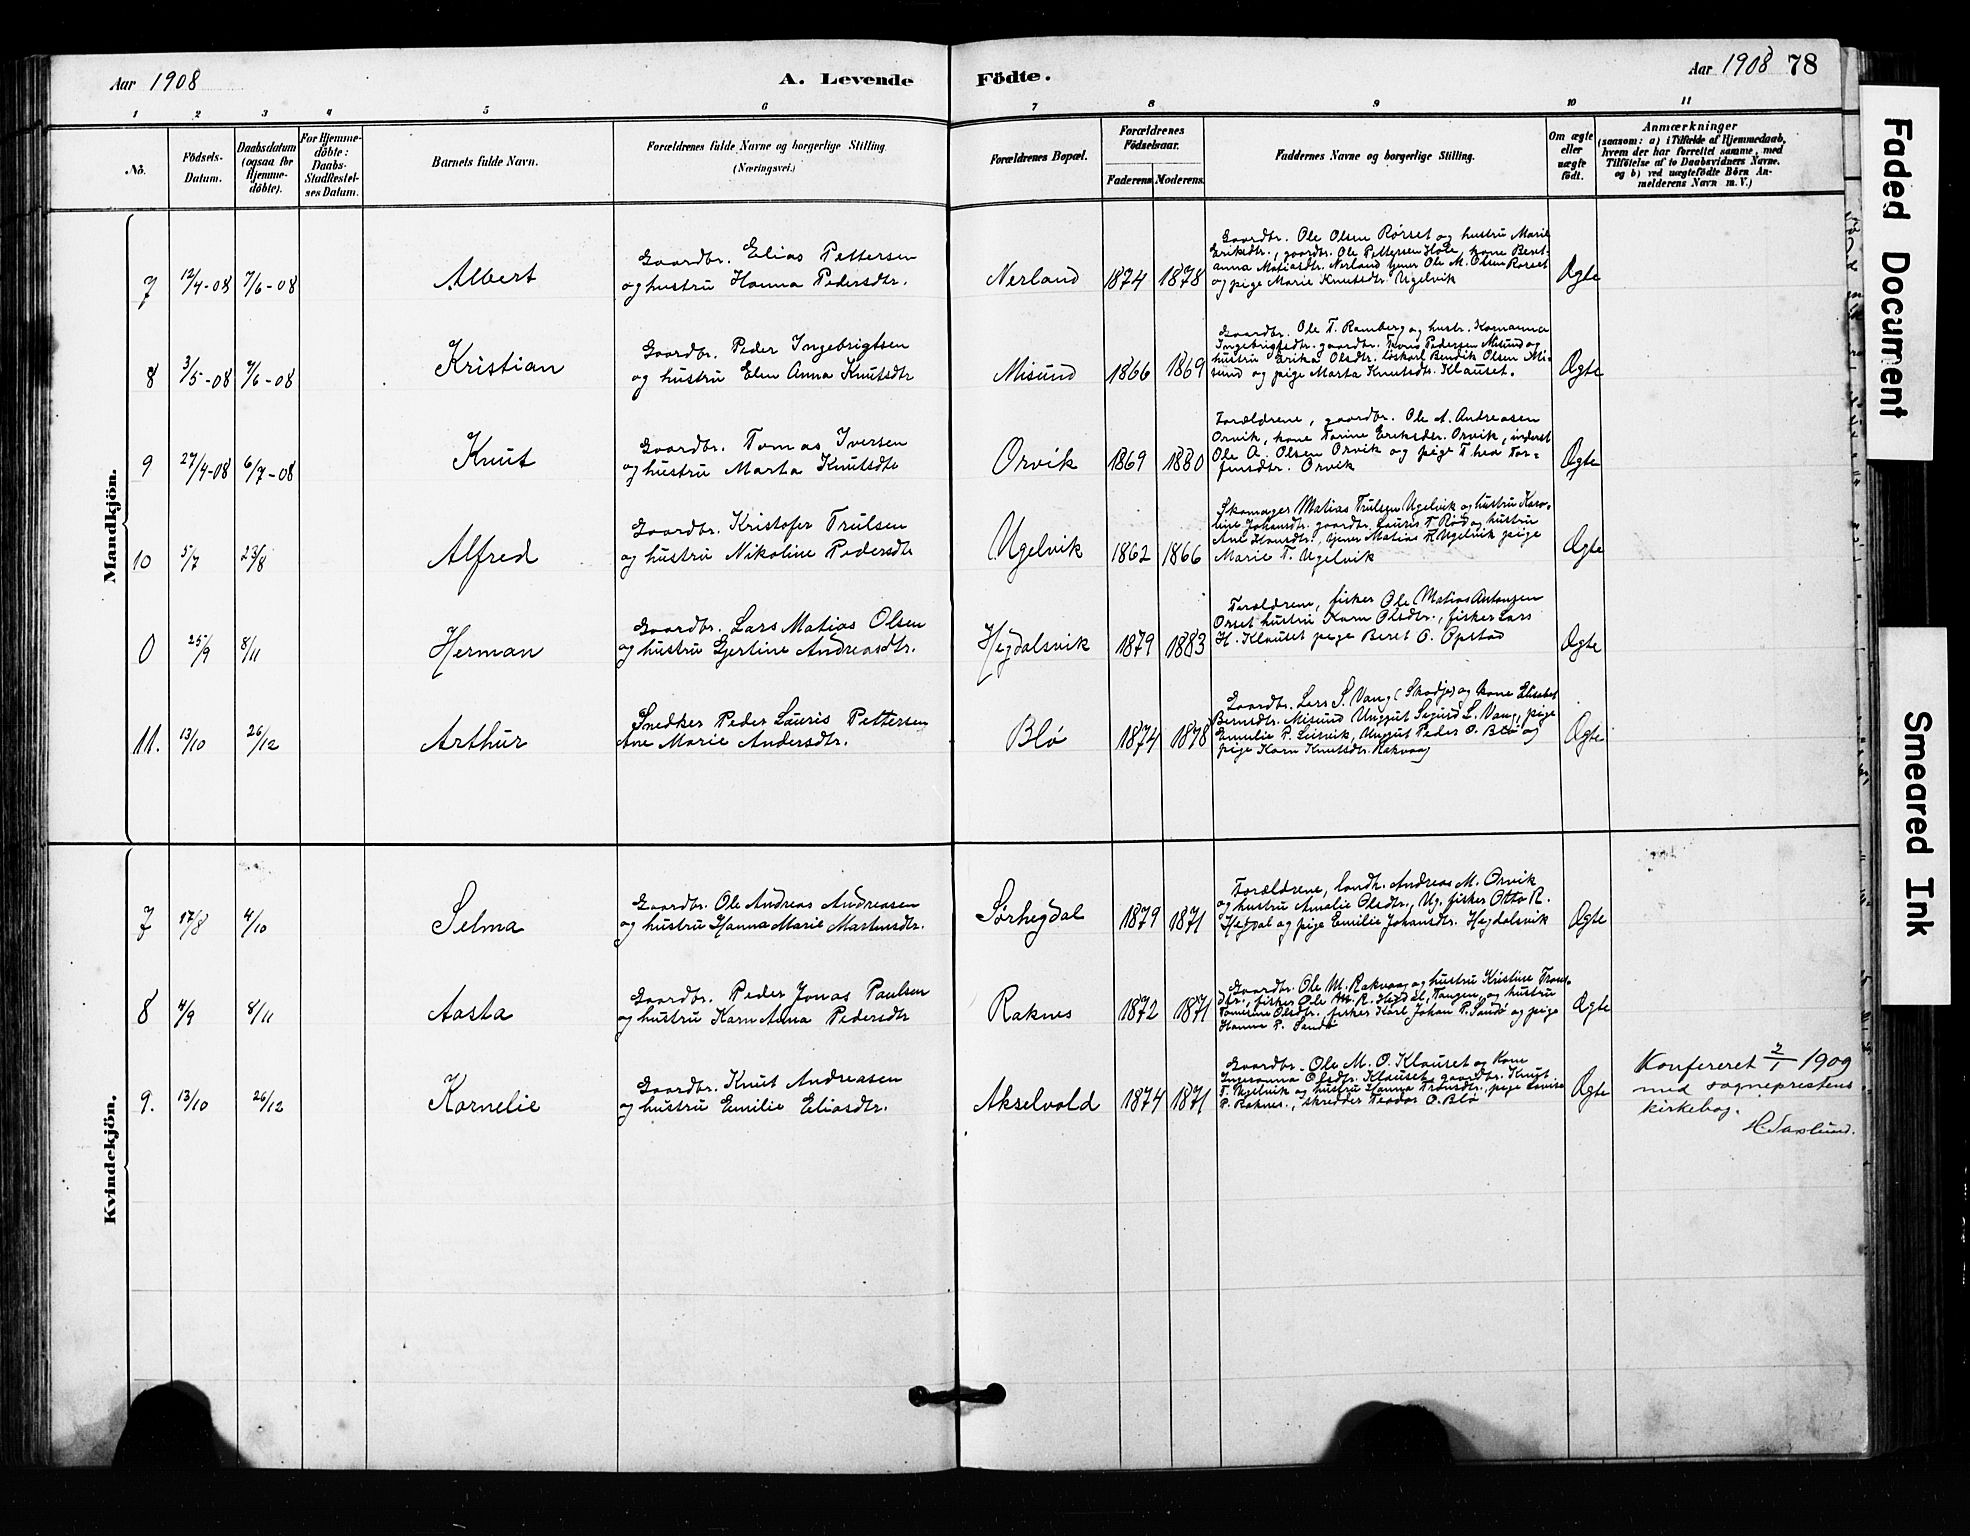 Aar 1908
A. Levende
Födte.
Aar 1908 78
1 2 3 4 5 6 7 8 9 10 11
No.
Födsels-Datum.
Daabsdatum (ogsaa for Hjemme-döbte).
For Hjemme-döbte: Daabs-Stadfæstel-ses Datum.
Barnets fulde Navn.
Forældrenes fulde Navne og borgerlige Stilling
(Næringsvei.)
Forældrenes Bopæl.
Forældrenes Födselsaar.
Faderens
Moderens.
Faddernes Navne og borgerlige Stilling.
Om ægte eller uægte födt.
Anmærkninger
(saasom: a) i Tilfælde af Hjemmedaab,
hvem der har forrettet samme, med
Tilföielse af to Daabsvidners Navne.
og b) ved uægtefödte Börn An-
melderens Navn m. V.)
Mandkjön.
7 12/4-08 7/6-08 Albert
Gaardbr. Elias Pettersen
og hustru Hanna Pedersdtr.
Nerland 1874 1878
Gaardbr. Ole Olsen Rørset og hustru Marie
Eriksdtr., gaardbr. Ole Pettersen Hole, kone Beret-
anna Matiasdtr. Nerland tjener Ole M. Olsen Rørset
og pige Marie Knutsdtr. Ugelvik
Ægte
8 3/5-08 7/6-08 Kristian
Gaardbr. Peder Ingebrigtsen
og hustru Elen Anna Knutsdtr
Misund 1866 1869
Gaardbr. Ole T. Ramberg og hustr.
Ingebrigtsdtr. gaardbr. Pedersen Misund og
hustru Erika Olsdtr. løskarl Bendik Olsen Mi-
sund og pige Marta Knutsdtr. Klauset.
Ægte
9 27/4-08 6/7-08 Knut
Gaardbr. Tomas Iversen
og hustru Marta Knutsdtr
Orvik 1869 1880
Forældrene, gaardbr. Ole A. Andreasen
Orvik, kone Tarine Eriksdtr. Orvik, inderst
Ole A. Olsen Orvik og pige Thea Tor-
finsdtr. Orvik
Ægte
10 5/7 23/8 Alfred
Gaardbr. Kristofer Trulsen
og hustru Nikoline Pedersdtr
Ugelvik 1862 1866
Skomager Matias Trulsen Ugelvik og hustru Karo-
line Johansdtr. gaardbr. Lauris T. Rød og hustru
Ane Hansdtr., tjener Matias K. Ugelvik pige
Marie T. Ugelvik
Ægte
0 25/9 8/11 Herman
Gaardbr. Lars Matias Olsen
og hustru Gjertine Andreasdtr.
Hegdalsvik 1879 1883
Forældrene, fisker Ole Matias Antonsen
Orset hustru Karn Olsdtr., fisker Lars
H. Klauset pige Beret O. Opstad
Ægte
11. 13/10 26/12 Arthur
Snedker Peder Lauris Pettersen
Ane Marie Andersdtr.
Blø 1874 1878
Gaardbr. Lars S. Vang (Skodje) og kone Elisabet
Berndtr. Misund Unggut Sigurd L. Vang, pige
Emilie P. Leirvik, Unggut Peder O. Blø og
pige Karn Knutsdtr. Rakvaag
Ægte
Kvindekjön.
7 17/8 4/10 Selma
Gaardbr. Ole Andreas Andreasen
og hustru Hanna Marie Martinsdtr.
Sørhegdal 1879 1871
Forældrene, landh. Andreas M. Orvik
og hustru Amalie Olsdtr., Ug. fisker Otto R.
Hegdal og pige Emilie Johansdtr. Hegdalsvik
Ægte
8 4/9 8/11 Aasta
Gaardbr. Peder Jonas Paulsen
og hustru Karn Anna Pedersdtr
Raknes 1872 1871
Gaardbr. Ole M. Rakvaag og hustru Kristine Trons-
dtr., fisker Ole M. R. Hegdal, Tangen, og hustru
Tomine Olsdtr., fisker Karl Johan P. Sandø og pige
Hanna P. Sandø
Ægte
9. 13/10 26/12 Kornelie
Gaardbr. Knut Andreasen
og hustru Emilie Eliasdtr.
Akselvold 1874 1871
Gaardbr. Ole M. O. Klauset og kone
Ingeranna Olsdtr. Klauset, gaardbr. Knut
T. Ugelvik og hustru Hanna Tronsdtr., pige Lovise
P. Raknes, skredder Teodor O. Blø
Ægte
Konfereret 2/1 1909
med sogneprestens
kirkebog.
H. Saxlund.
Faded Document
Smeared Ink